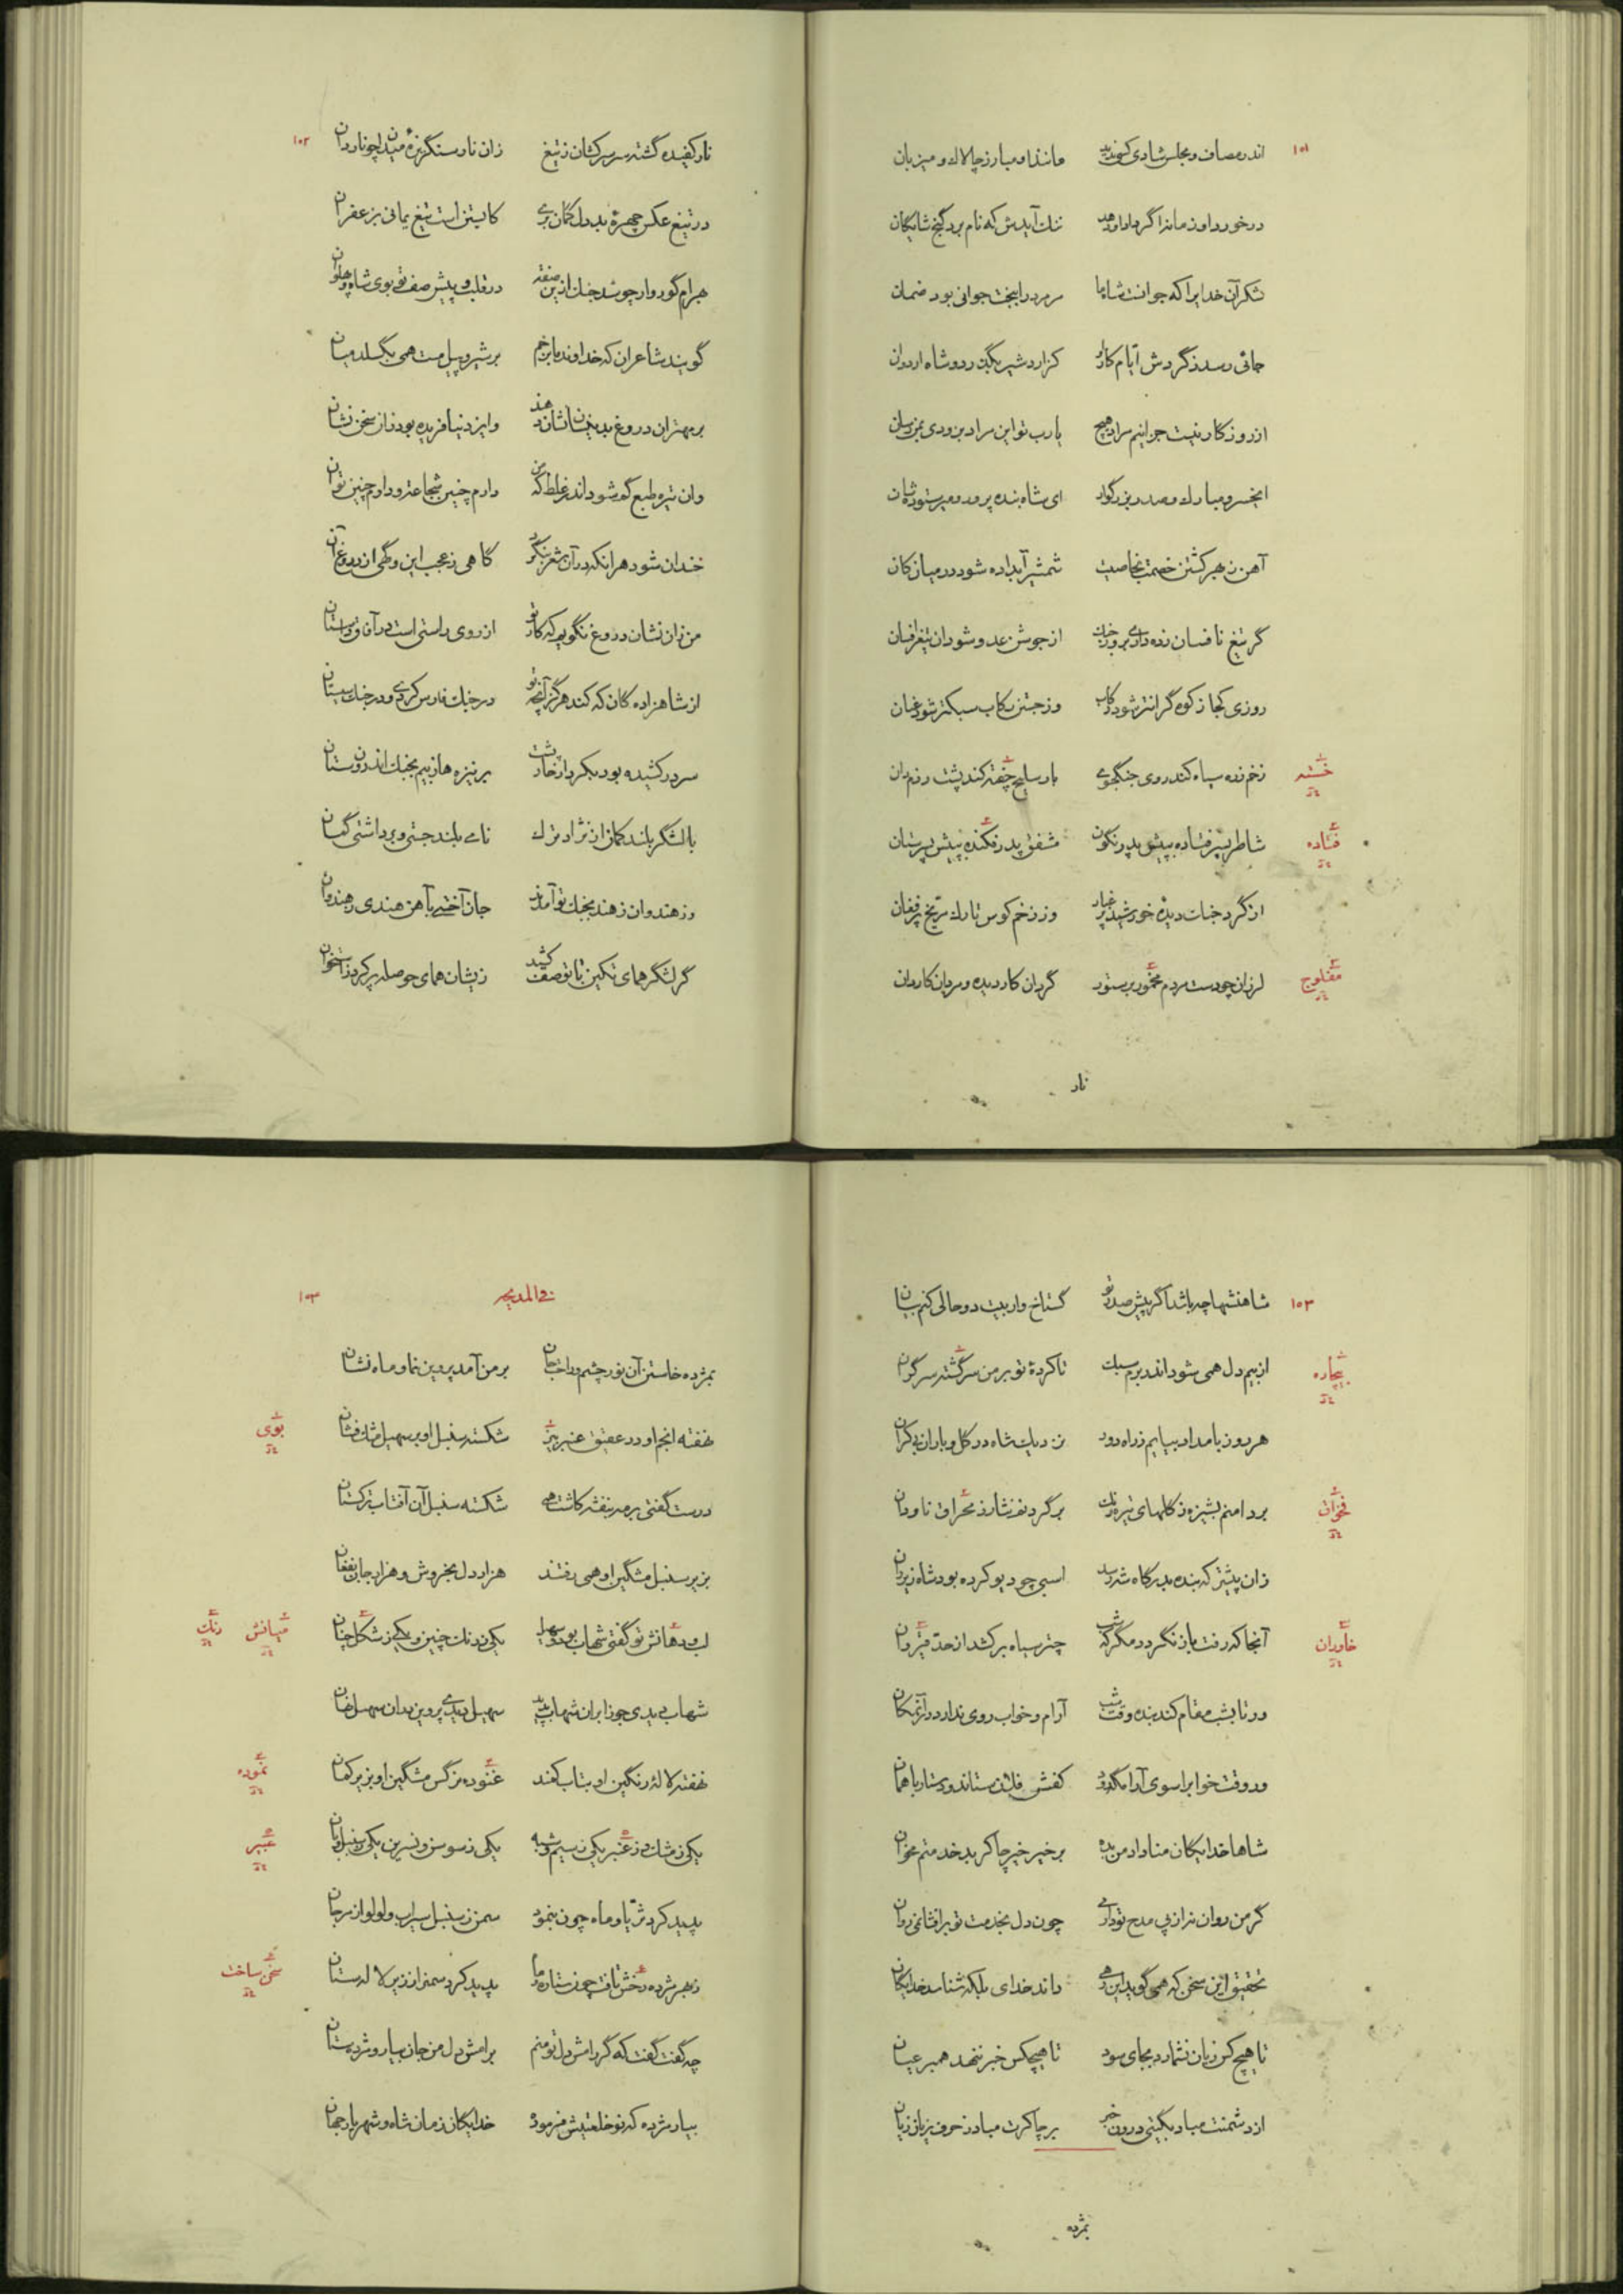 ۱۰۱
اندر مصاف و مجلس شادی کسی ندید مانند او مبارز چالاك و میزبان
در خورد او زمانه اگر داد او دهد ننك آیدش که نام برد گنج شایگان
شکر آن خدایرا که جوانست شاه ما مر مرد را ببخت جوانی بود ضمان
جائی رسد ز گردش ایام کار او کز اردشیر بگذرد و شاه اردوان
از روزگار نیست جز اینم مراد هیچ یا رب تو این مراد بزودی بمن رسان
ای خسرو مبارك و صدر بزرگوار ای شاه بنده پرور و میر ستوده شان
آهن ز بهر کشتن خصمت بخاصیت شمشیر آبداده شود در میان کان
گر تیغ نا فسان زده داری بروز جنك از جوش عدو شود آن تیغ را فسان
روزی کجا ز کوه گرانتر شود رکاب وز جستن رکاب سبکتر شود عنان
زخم زره سیاه کند روی جنگجوی بار سلیح چفته کند پشت رزم ران
خسته
شاطر پسر فتاده بپیش پدر نگون مشفق پدر فکنده بپیش پسر ستان
فتاده
از گرد جنك دیده خورشید پر غبار وز زخم کوس تارك مریخ پر فغان
لرزان چو دست مردم مخمور بر ستور گردان کار دیده و مردان کاردان
مفلوج
نار
۱۰۲
نار کفیده گشته سر سرکشان ز تیغ زان نار سنگریزه میدان چو ناردان
در تیغ عکس چهره بد دل گمان بری کابستن است تیغ یمانی بزعفران
بهرام گوروار چو شد جنك از این صفت در قلب و پیش صف تو بوی شاه و پهلوان
گویند شاعران که خداوند ما بزخم بر شیر و پیل مست همی بگسلد میان
بر مهتران دروغ بدینسان نشان دهند وایزد نیافریده بود زان سخن نشان
وان تیره طبع گم شود اندر غلط که من دارم چنین شجاعت و دارم چنین توان
خندان شود هر آنکه در آن شعر بنگرد گاهی ز عجب این و گهی از دروغ آن
من زان نشان دروغ نگویم که کار تو از روی راستی است در آفاق داستان
از شاهزادگان که کند هرگز آنچه تو در جنك فارس کردی و در جنك سیستان
سر در کشیده بود بکردار خارپشت بر نیزه ها ز بیم بجنك اندرون ستان
با لشگر بلند کمان از نژاد ترك نامی بلند جستی و برداشتی گمان
وز هندوان ز هند بجنك تو آمدند جان آختی بآهن هندی ز هندوان
گر لشگر همای تکین با تو صف کشید زیشان همای حوصله پر کرد ز استخوان
۱۰۳
شاهنشها چه باشد اگر پیش صدر تو گستاخ وار بیت دو حالی کنم بیان
از بیم دل همی شود اندر برم سبك تا کرده تو بر من سرگشته سر گران
بیچاره
هر روز بامداد بیایم ز راه دور نزدیك شاه در گل و باران بی کران
بر دامنم پشیزه ز گلهای تیره رنك بر گردنم نثار ز محراق ناودان
زان پیشتر که بنده بدرگاه شه رسد اسبی چو دیو کرده بود شاه زیر ران
آنجا که رفت باز نگردد مگر که شب چتر سیاه برکشد از حد قیروان
خاوران
ور تا بشب مقام کند بنده وقت شب آرام و خواب روی ندارد در آن مکان
ور وقت خواب را سوی آرامگه رود کفشش فلان ستاند و دستار باهمان
شاها خدایگان منا داد من بده بر خیر خیر چاکر بد خدمتم مخوان
گر من روان نه از پی مدح تو دارمی چون دل بخدمت تو برافشانمی روان
تحقیق این سخن که همی گوید این رهی داند خدای بلکه شناسد خدایگان
تا هیچ کس زیان نشمارد بجای سود تا هیچکس خبر ننهد همبر عیان
از دشمنت مباد بگیتی درون خبر بر چاکرت مباد ز حرف زبان زیان
مژده
۱۰۳
فی المدیحه
بمژده خاستن آن نور چشم و راحت جان بر من آمد پروین نما و ماه نشان
نهفته انجم او در عقیق عنبر بیز شکسته سنبل او بر سهیل مشك فشان
بوی
درست گفتی بر مه بنفشه کاشت همی شکسته سنبل آن آفتاب ترکستان
بزیر سنبل مشگین او همی رفتند هزار دل بخروش و هزار جان بفغان
لب و دهانش تو گفتی شهاب بود و سها یکی ز رنك چنین و یکی ز شکل چنان
میانش رنك
شهاب دیدی جوزا بر آن شهاب پدید سهیل دیدی پروین بدان سهیل نهان
نهفته لاله رنگین او بتاب کمند غنوده نرگس مشگین او بزیر کمان
نموده
یکی ز مشك و ز عنبر یکی ز سیم و شبه یکی ز سوسن و نسرین یکی ز سنبل و بان
عبیر
پدید کرد ثریا و ماه چون بنمود سمن ز سنبل سیراب و لولو از مرجان
ز بهر مژده رخش تافت چون ستاره و ماه پدید کرد سمنزار از زبر لاله ستان
سخن ساخت
چه گفت گفت که گر رامش دل تو منم برامش دل من جان بیار و مژده ستان
بیار مژده که نو خلعتیش فرموده خدایگان زمان شاه و شهریار جهان